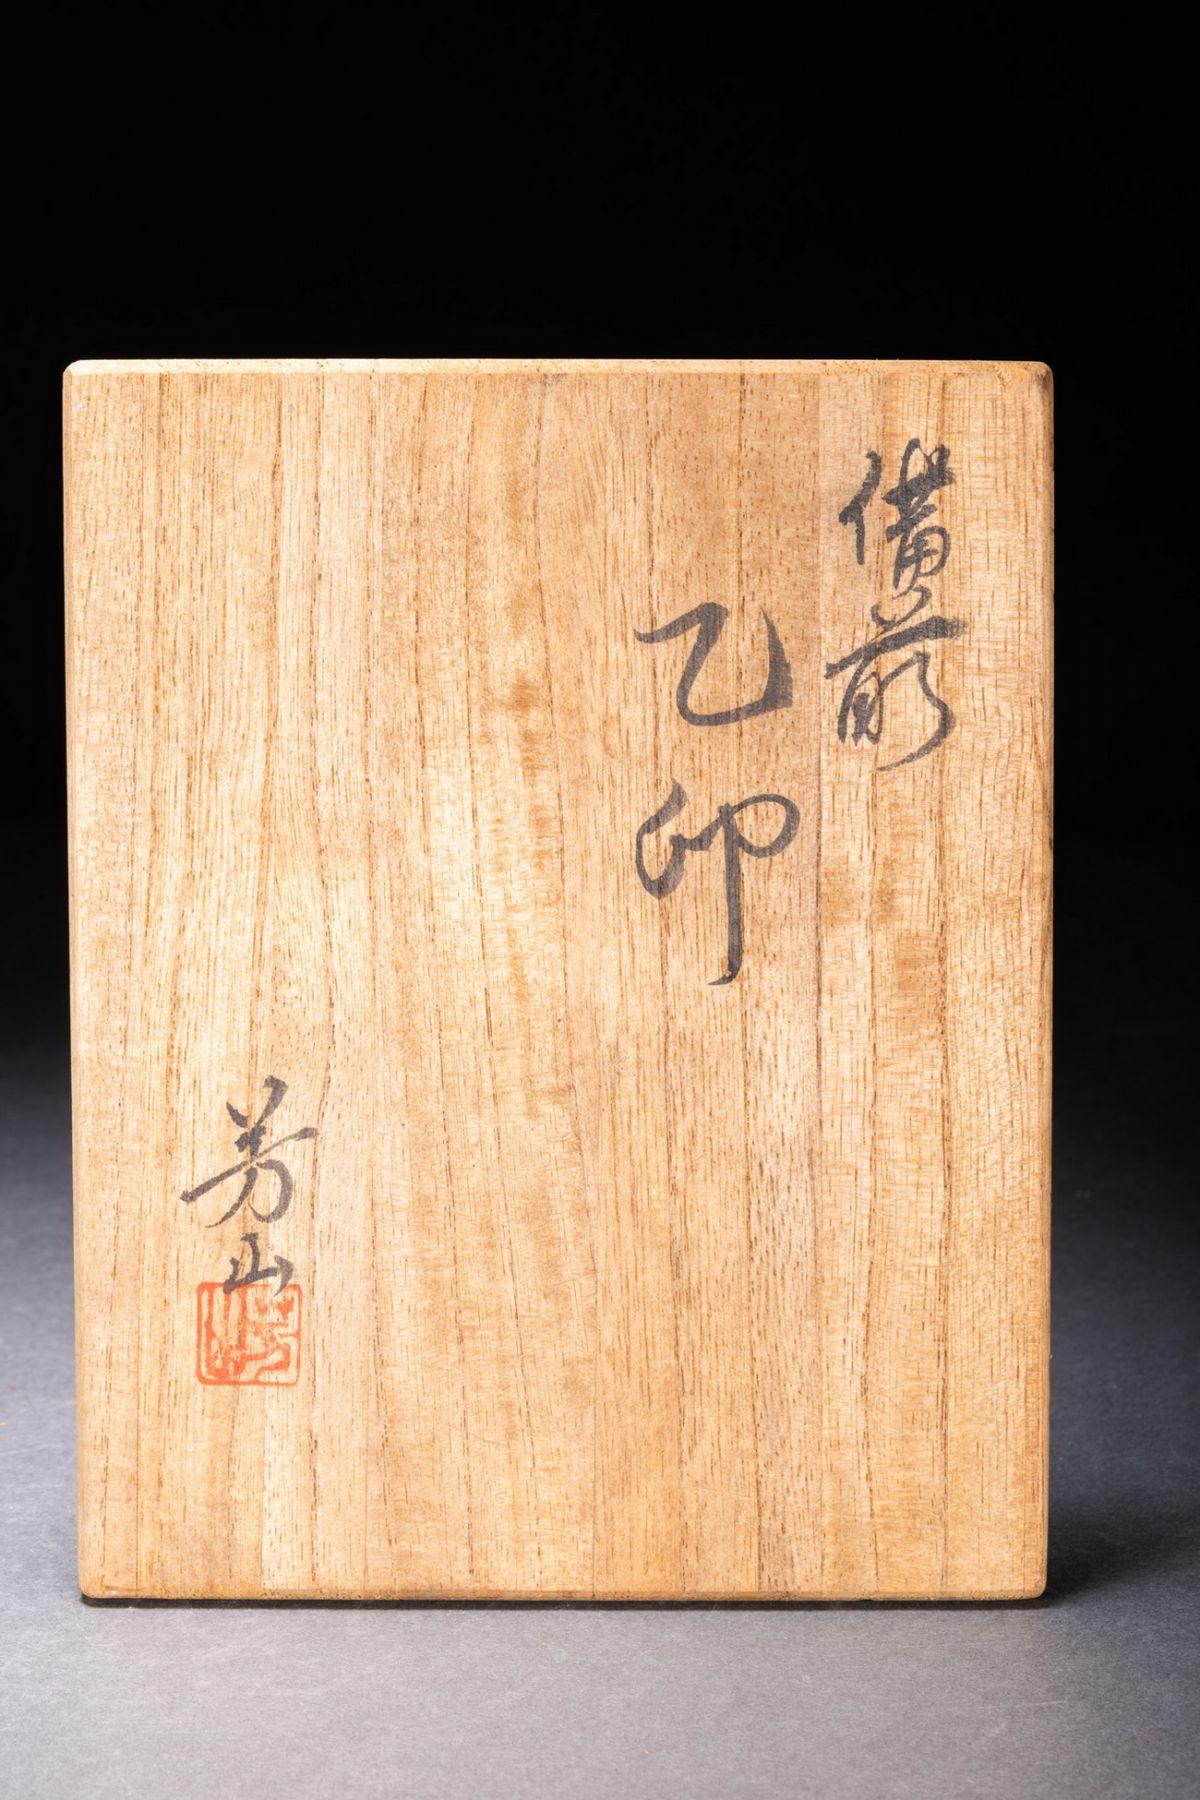 備前
乙卯
芳山